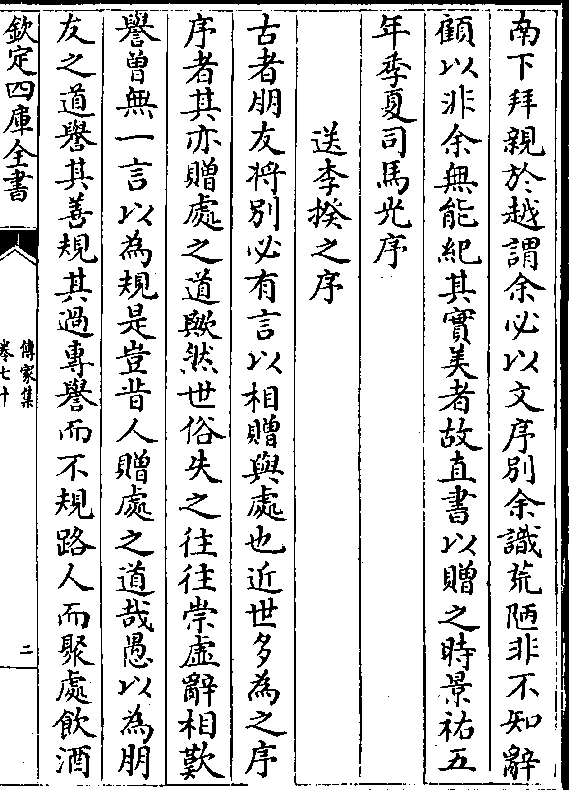 南下拜親於越謂余必以文序別余識荒陋非不知辭
顧以非余無能紀其實美者故直書以贈之時景祐五
年季夏司馬光序
送李揆之序
古者朋友将別必有言以相贈與處也近世多為之序
序者其亦贈處之道歟然世俗失之往往崇虛辭相歎
譽曽無一言以為規是豈昔人贈處之道哉愚以為朋
友之道譽其善規其過專譽而不規路人而聚處飲酒
欽定四庫全書
傳家集
卷七十
二